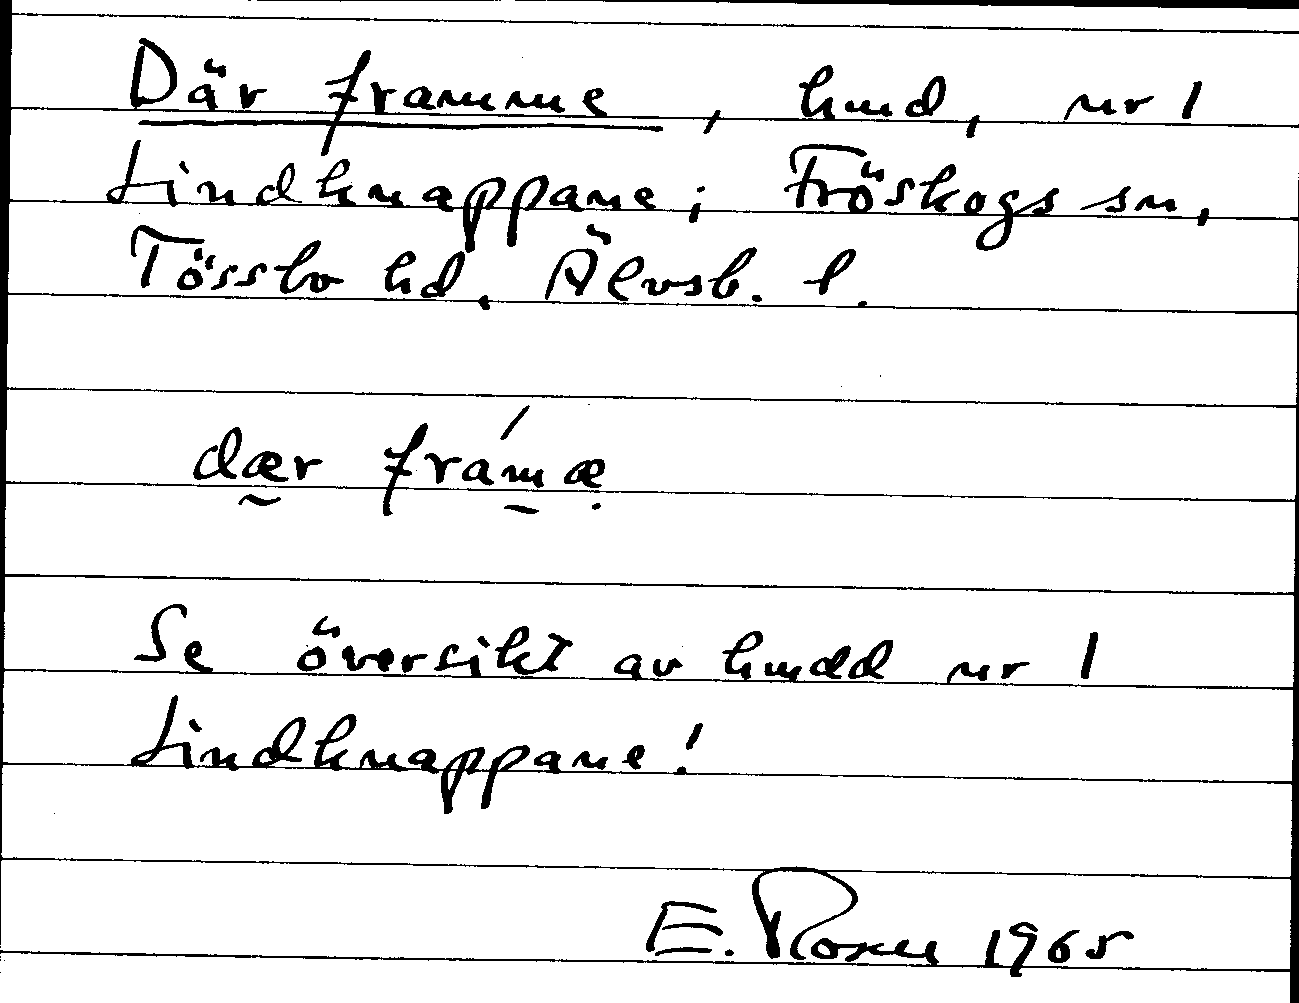 Där framme, hmd, nr 1
Lindknappane; Fröskogs sn,
Tössbo hd, Älvsb. l.
dær framæ
Se översikt av hmdd nr 1
Lindknappane!
E. Rosen 1965